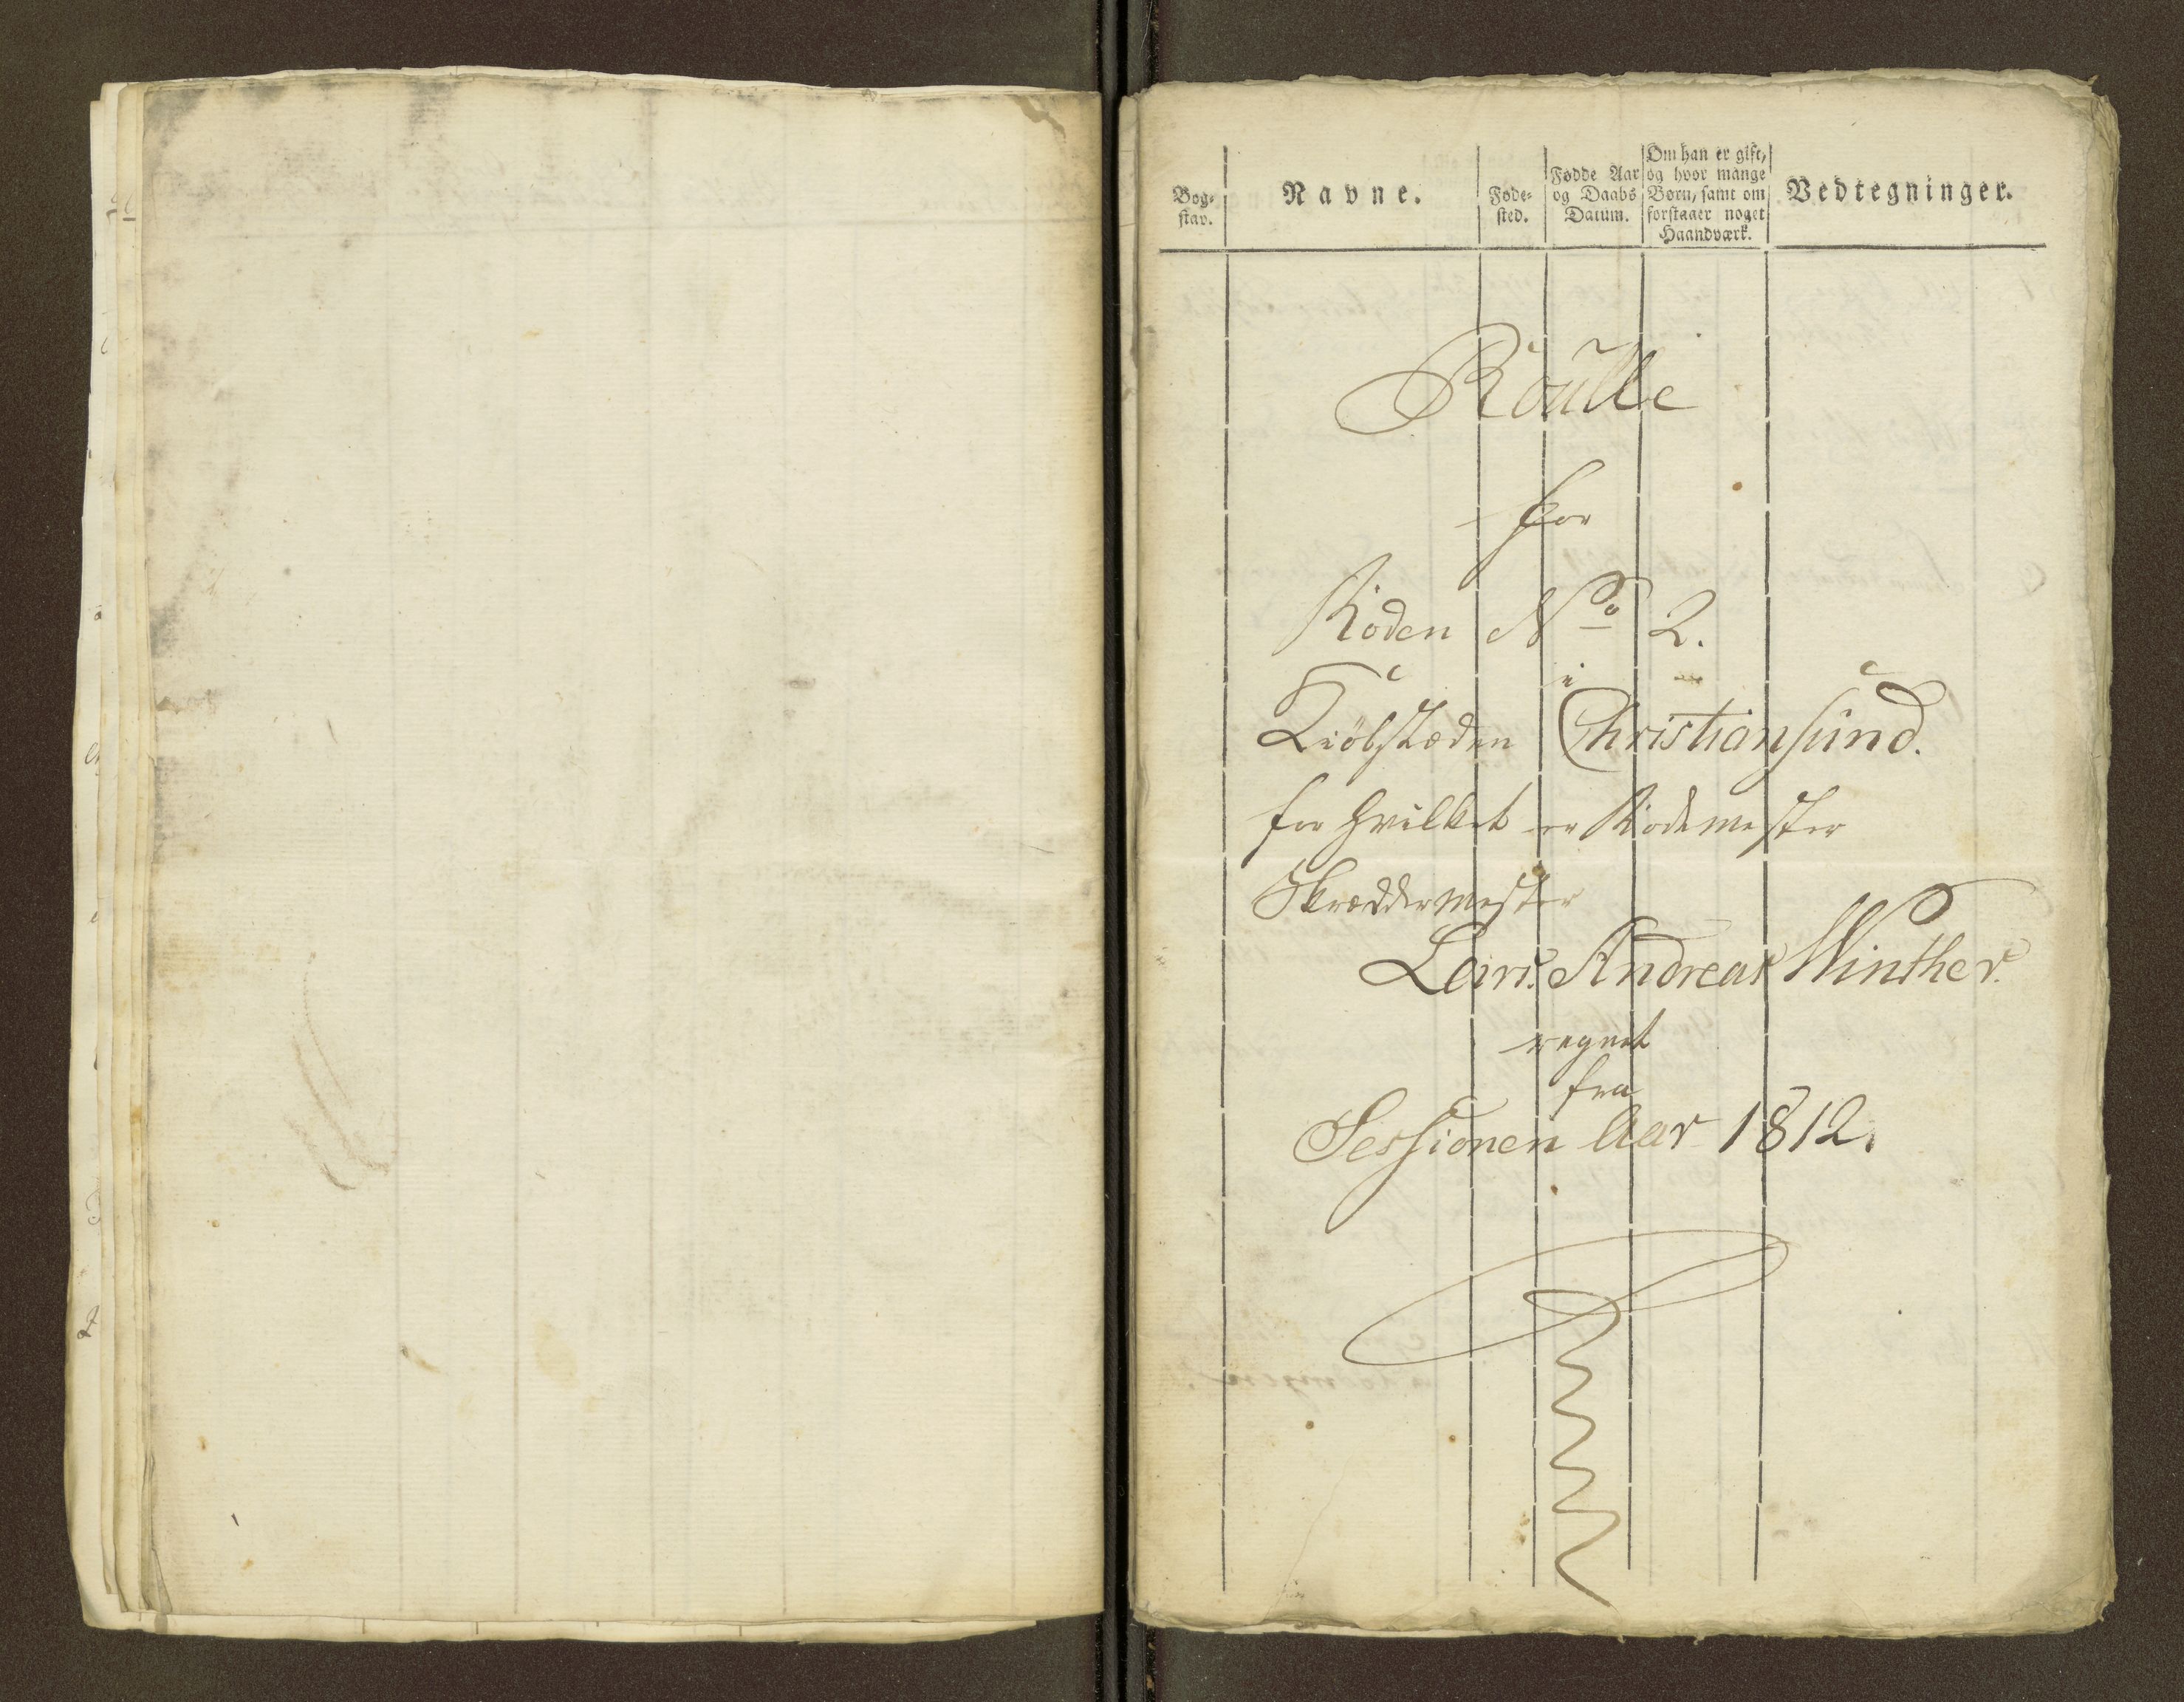 Bog-
stav.
Navne.
Føde-
sted.
Fødde Aar
og Daabs
Datum.
Om han er gift,
og hvor mange
Børn, samt om
forstaaer noget
Haandværk.
Vedtegninger.
Roulle
for
Roden No 2.
i
Kiöbstæden Christiansund.
for hvilket er Rodemester
Skræddermester
Lars Andreas Winther.
regnet
fra
Sessionen Aar 1812.